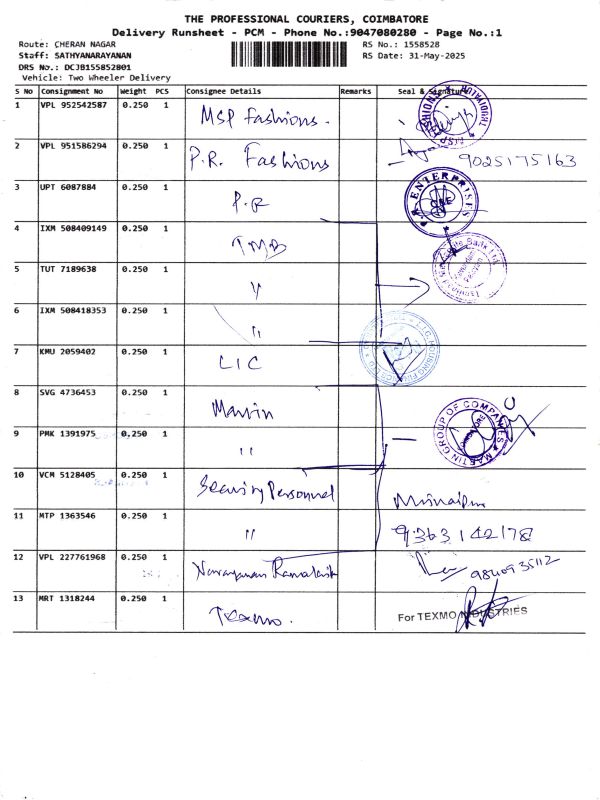 THE PROFESSIONAL COURIERS, COIMBATORE
Delivery Runsheet - PCM - Phone No.:9047080280 - Page No.:1
Route: CHERAN NAGAR RS No.: 1558528
Staff: SATHYANARAYANAN RS Date: 31-May-2025
DRS No.: DCJB155852801
Vehicle: Two Wheeler Delivery
S No Consignment No Weight PCS Consignee Details Remarks Seal & Signature
1 VPL 952542587 0.250 1 MSP Fashions.
2 VPL 951586294 0.250 1 P.R. Fashions 9025175163
3 UPT 6087884 0.250 1 P.R ENTERPRISES
4 IXM 508409149 0.250 1 TMB
5 TUT 7189638 0.250 1 y
6 IXM 508418353 0.250 1 "
7 KMU 2059402 0.250 1 LIC
8 SVG 4736453 0.250 1 Martin
MARTIN GROUP OF COMPANIES
9 PMK 1391975 0.250 1 "
10 VCM 5128405 0.250 1 Security Personnel
11 MTP 1363546 0.250 1 " 9363142178
12 VPL 227761968 0.250 1 Narayanan
13 MRT 1318244 0.250 1 Texmo. For TEXMO INDUSTRIES